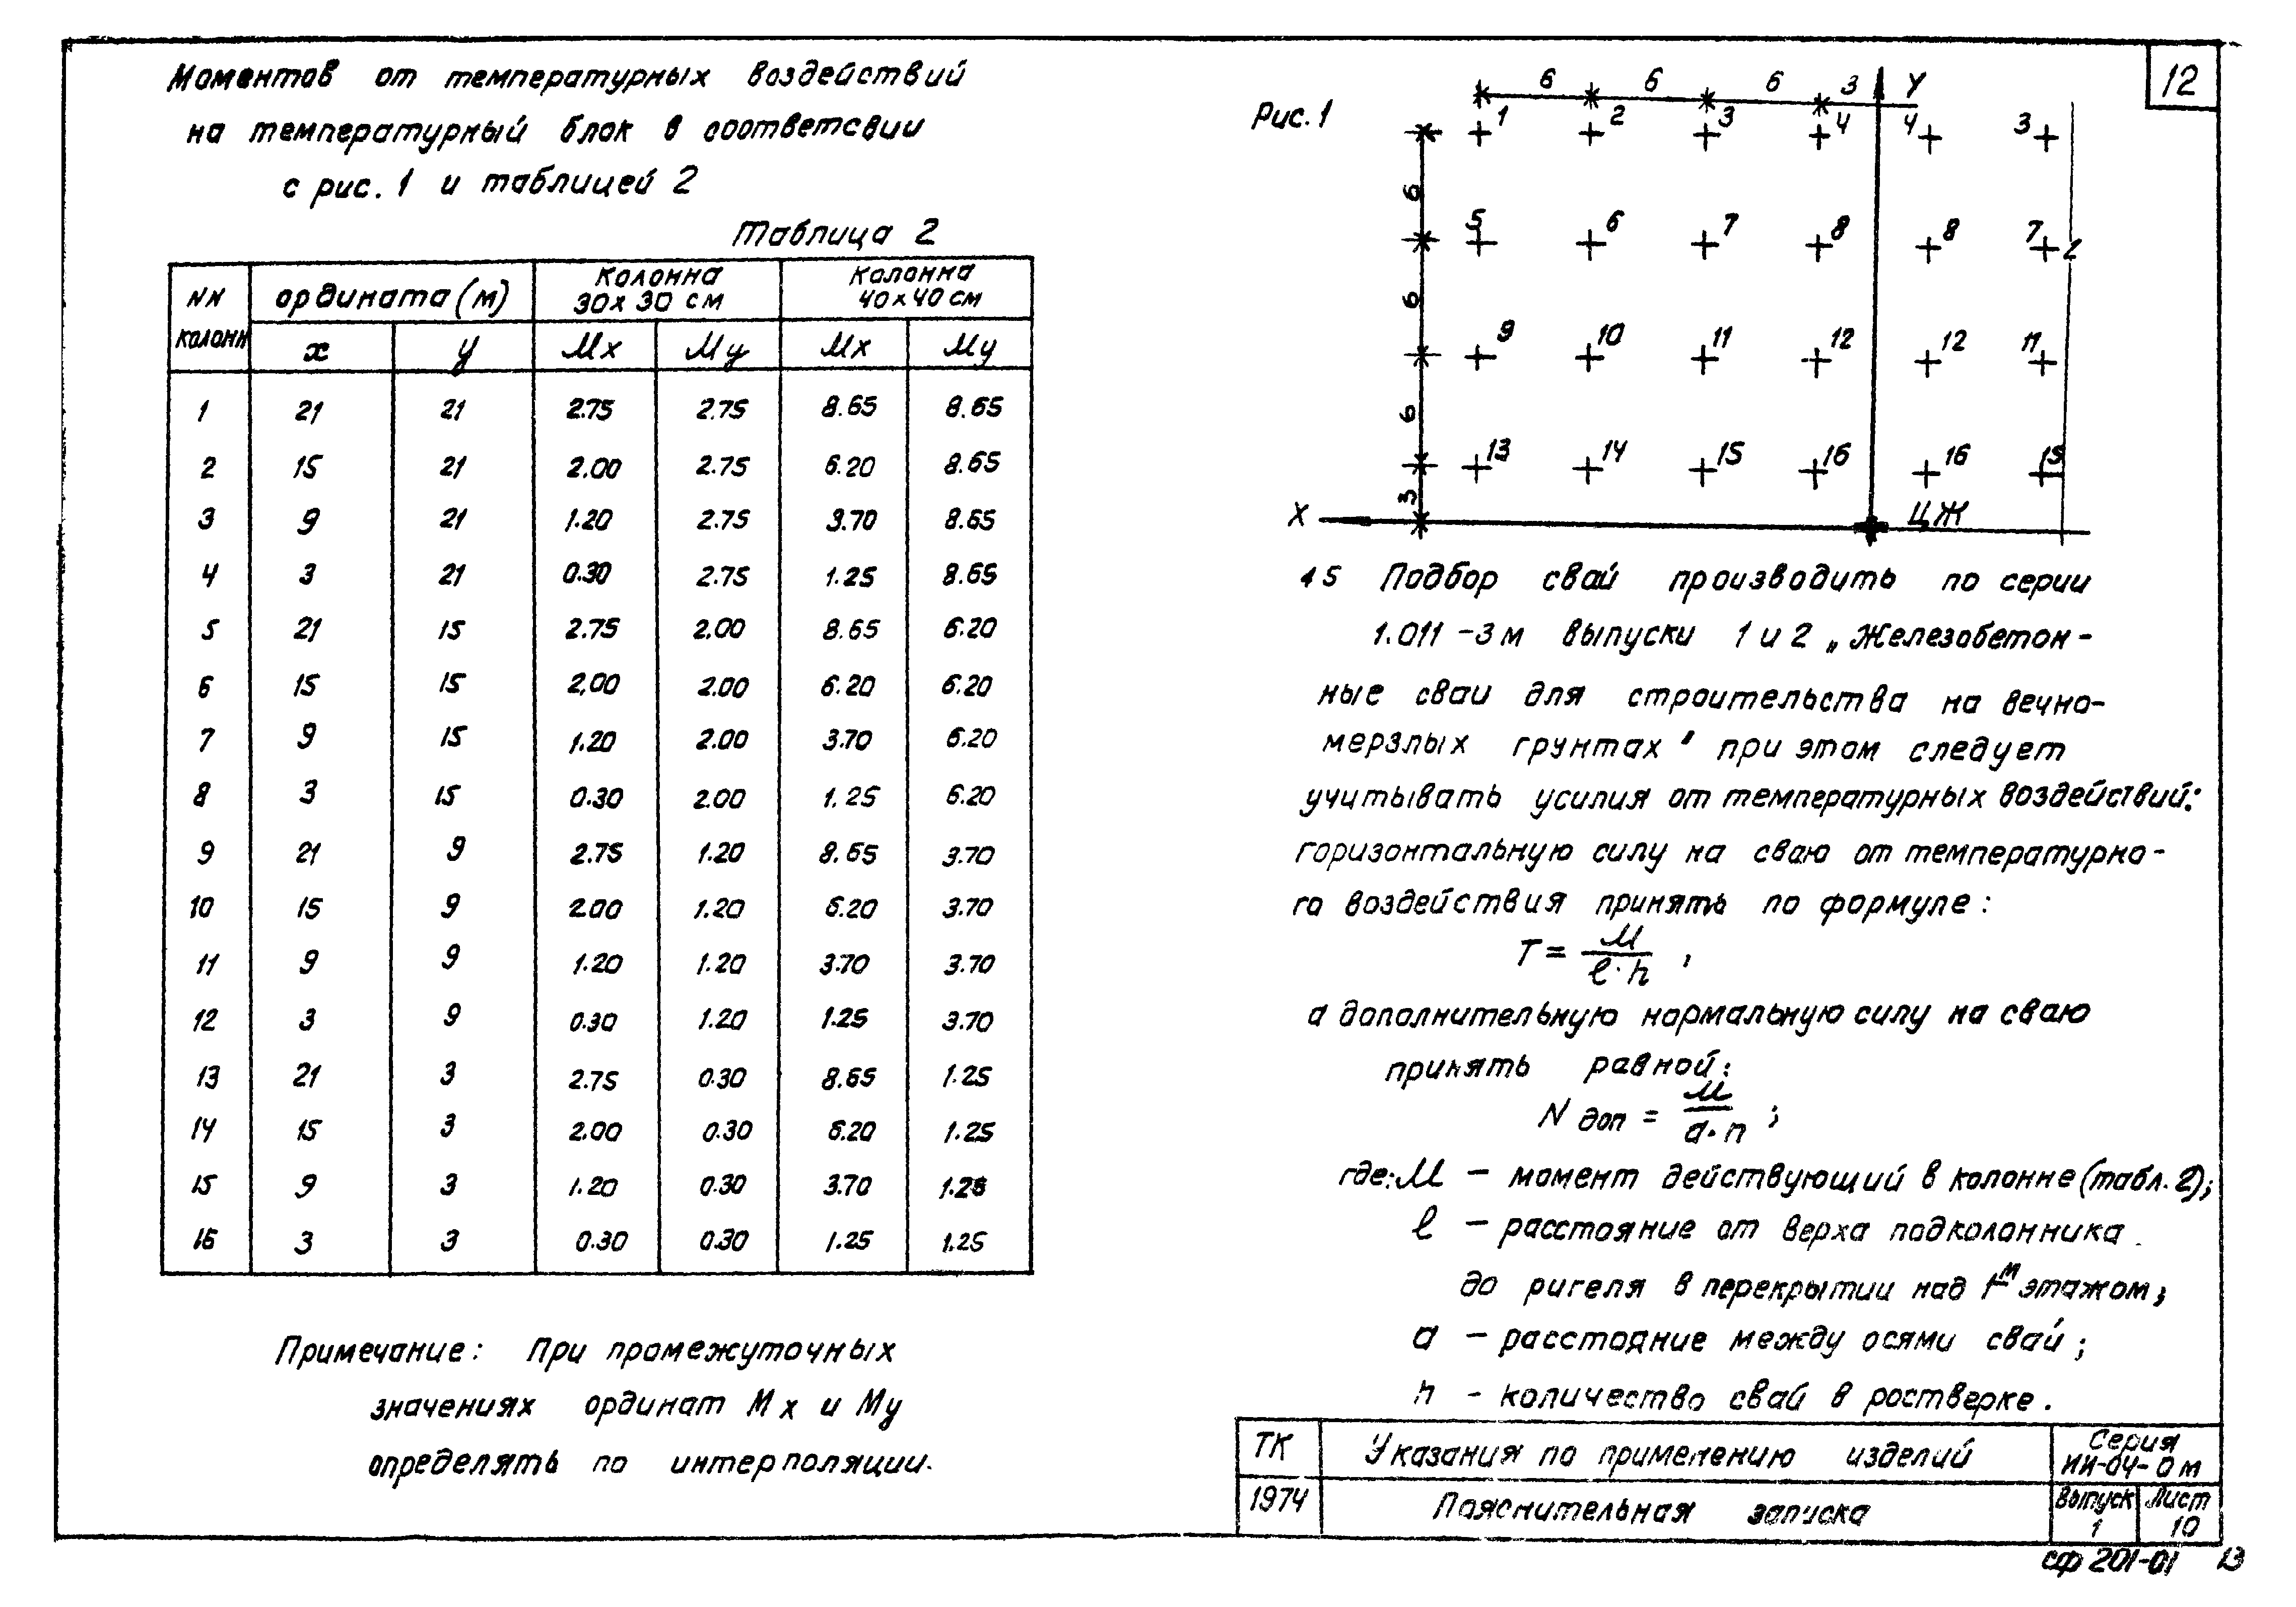 12
Моментов от температурных воздействий
на температурный блок в соответсвии
с рис. 1 и таблицей 2
Таблица 2
NN колонн | ордината (м) | Колонна 30х30 см | Колонна 40х40 см
х | у | Мх | Му | Мх | Му
1 21 21 2.75 2.75 8.65 8.65
2 15 21 2.00 2.75 6.20 8.65
3 9 21 1.20 2.75 3.70 8.65
4 3 21 0.30 2.75 1.25 8.65
5 21 15 2.75 2.00 8.65 6.20
6 15 15 2.00 2.00 6.20 6.20
7 9 15 1.20 2.00 3.70 6.20
8 3 15 0.30 2.00 1.25 6.20
9 21 9 2.75 1.20 8.65 3.70
10 15 9 2.00 1.20 6.20 3.70
11 9 9 1.20 1.20 3.70 3.70
12 3 9 0.30 1.20 1.25 3.70
13 21 3 2.75 0.30 8.65 1.25
14 15 3 2.00 0.30 6.20 1.25
15 9 3 1.20 0.30 3.70 1.25
16 3 3 0.30 0.30 1.25 1.25
Примечание: При промежуточных
значениях ординат Мх и Му
определять по интерполяции.
Рис. 1
6 6 6 3 У
1 2 3 4 4 3
6
5 6 7 8 8 7 2
6
9 10 11 12 12 11
6
13 14 15 16 16 15
3
Х ЦЖ
4 5 Подбор свай производить по серии
1.011-3м выпуски 1 и 2 „Железобетон-
ные сваи для строительства на вечно-
мерзлых грунтах" при этом следует
учитывать усилия от температурных воздействий:
горизонтальную силу на сваю от температурно-
го воздействия принять по формуле:
T = М / ℓ·n ,
а дополнительную нормальную силу на сваю
принять равной:
N доп = М / а·n ;
где: М – момент действующий в колонне (табл. 2);
ℓ – расстояние от верха подколонника
до ригеля в перекрытии над 1м этажом;
а – расстояние между осями свай;
n - количество свай в ростверке.
ТК Указания по применению изделий Серия ИИ-04-0м
1974 Пояснительная записка Выпуск 1 Лист 10
сф 201-01 13